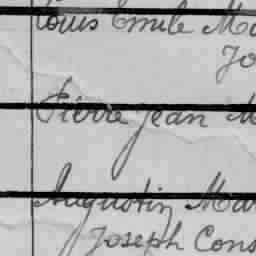 Louis Emile Ma
Jo
Pierre Jean M
Augustin Mar
Joseph Cons